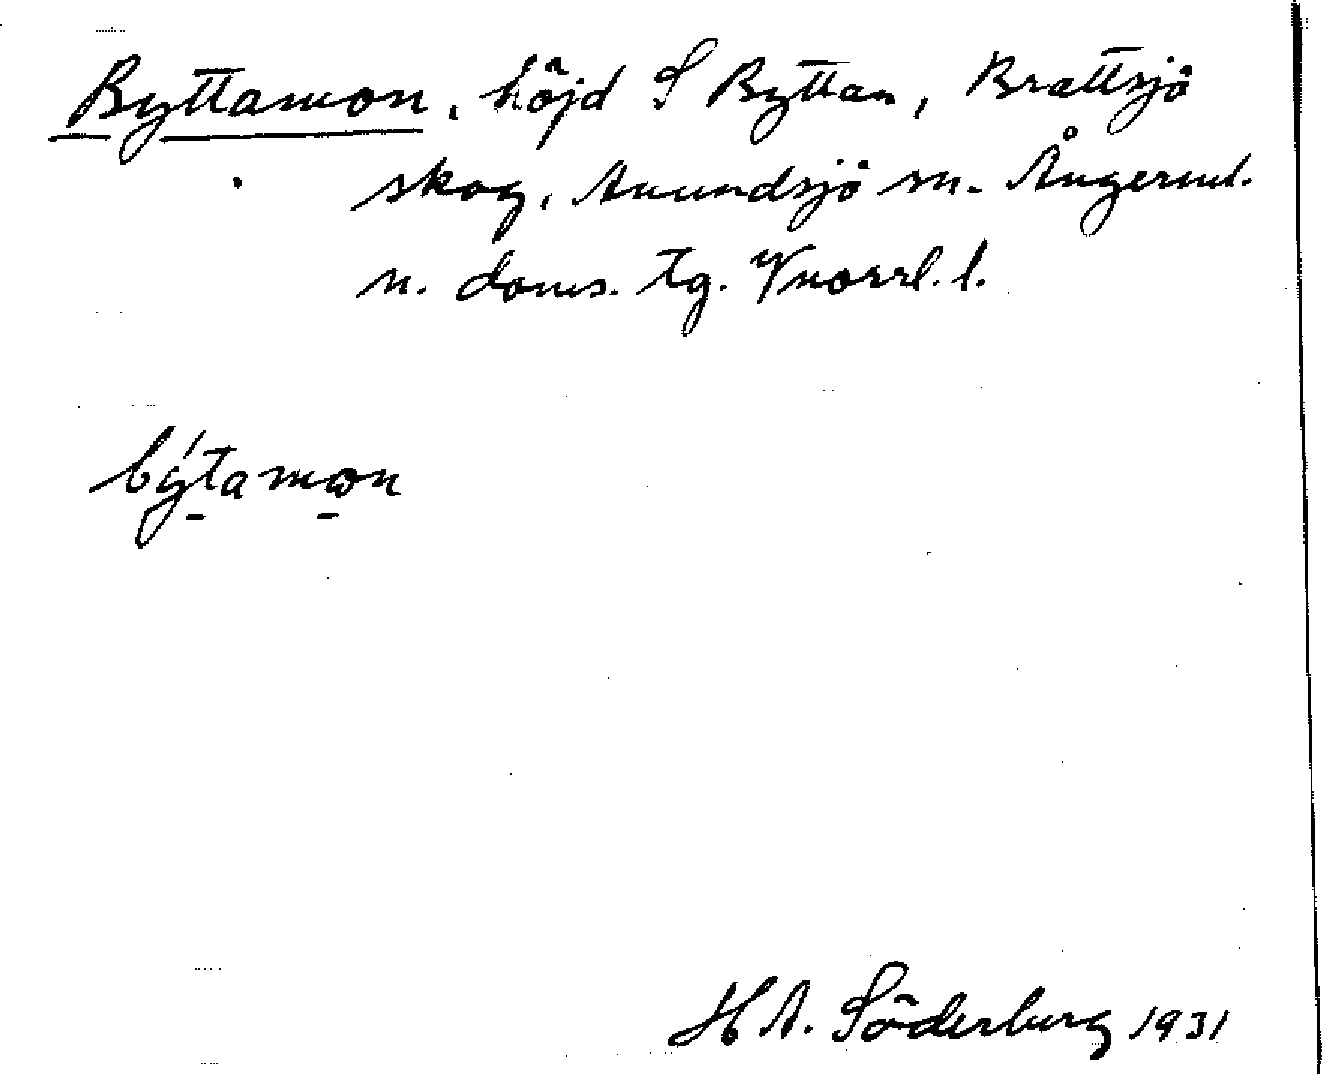 Byttamon, höjd S Byttan, Brattsjö
skog, Anundsjö sn. Ångerml.
n. doms. tg. Vnorrl. l.
býtamon
H A. Söderberg 1931